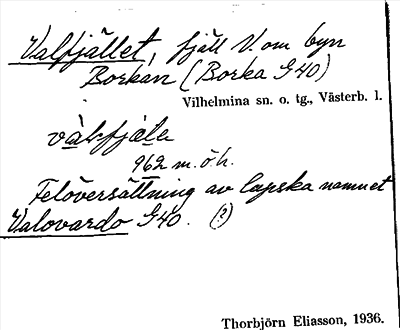 Valfjället, fjäll V. om byn
Borkan (Borka G40)
Vilhelmina sn. o. tg., Västerb. l.
962 m.ö.h.
Felöversättning av lapska namnet
Valovardo G40. (?)
Thorbjörn Eliasson, 1936.